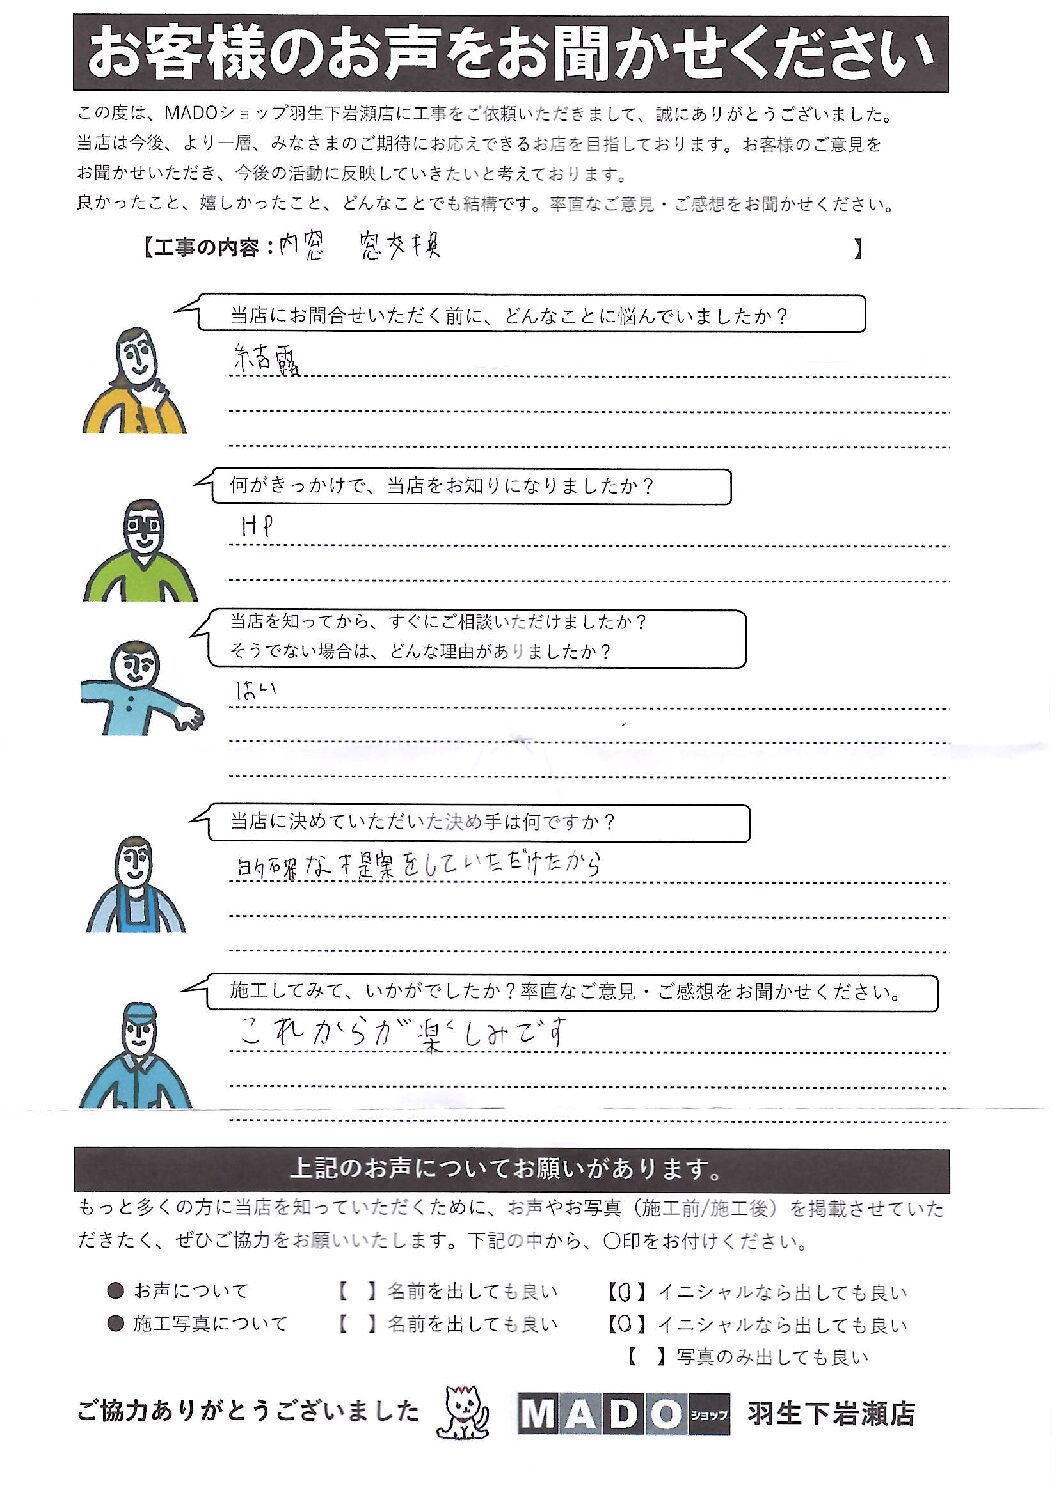 お客様のお声をお聞かせください
この度は、MADOショップ羽生下岩瀬店に工事をご依頼いただきまして、誠にありがとうございました。
当店は今後、より一層、みなさまのご期待にお応えできるお店を目指しております。お客様のご意見を
お聞かせいただき、今後の活動に反映していきたいと考えております。
良かったこと、嬉しかったこと、どんなことでも結構です。率直なご意見・ご感想をお聞かせください。
【工事の内容：内窓　窓交換　】
当店にお問合せいただく前に、どんなことに悩んでいましたか？
結露
何がきっかけで、当店をお知りになりましたか？
HP
当店を知ってから、すぐにご相談いただけましたか？
そうでない場合は、どんな理由がありましたか？
はい
当店に決めていただいた決め手は何ですか？
的確な提案をしていただけたから
施工してみて、いかがでしたか？率直なご意見・ご感想をお聞かせください。
これからが楽しみです
上記のお声についてお願いがあります。
もっと多くの方に当店を知っていただくために、お声やお写真（施工前/施工後）を掲載させていた
だきたく、ぜひご協力をお願いいたします。下記の中から、〇印をお付けください。
● お声について　【　】名前を出しても良い　【〇】イニシャルなら出しても良い
● 施工写真について　【　】名前を出しても良い　【〇】イニシャルなら出しても良い
【　】写真のみ出しても良い
ご協力ありがとうございました　MADOショップ　羽生下岩瀬店